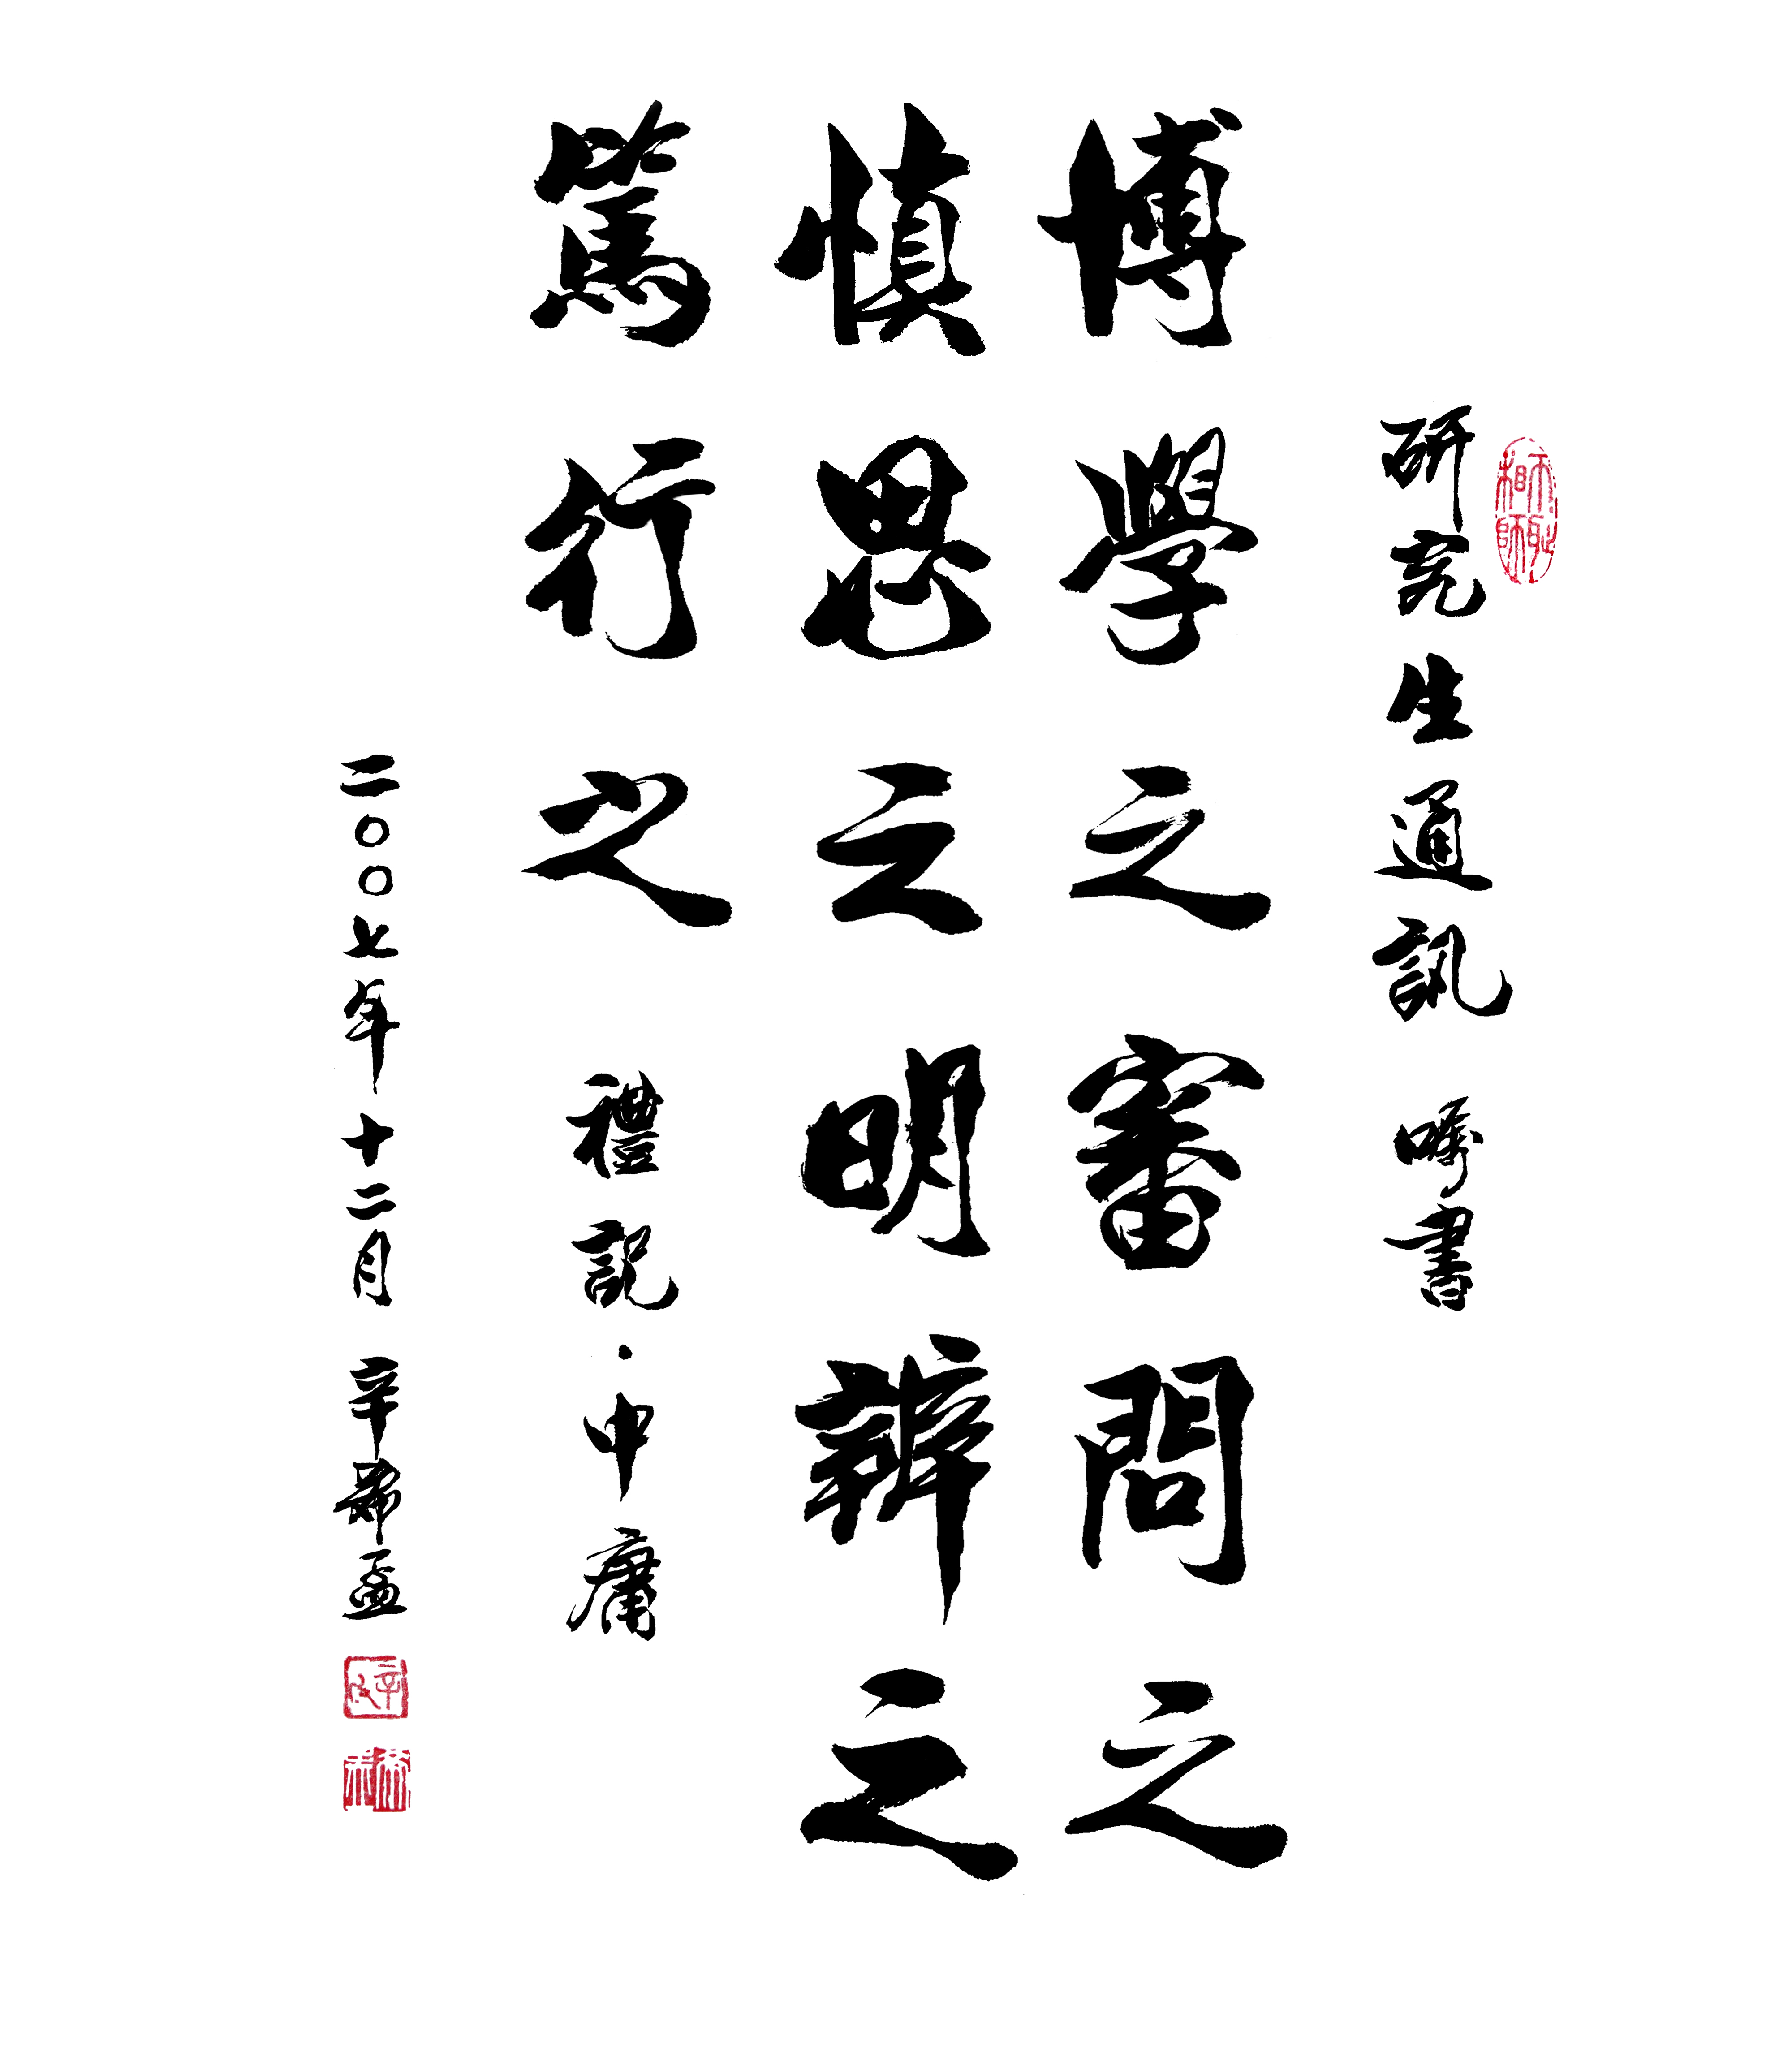 研究生通訊 囑書
博學之審問之
慎思之明辨之
篤行之 禮記·中庸
二〇〇七年十二月 辛希孟